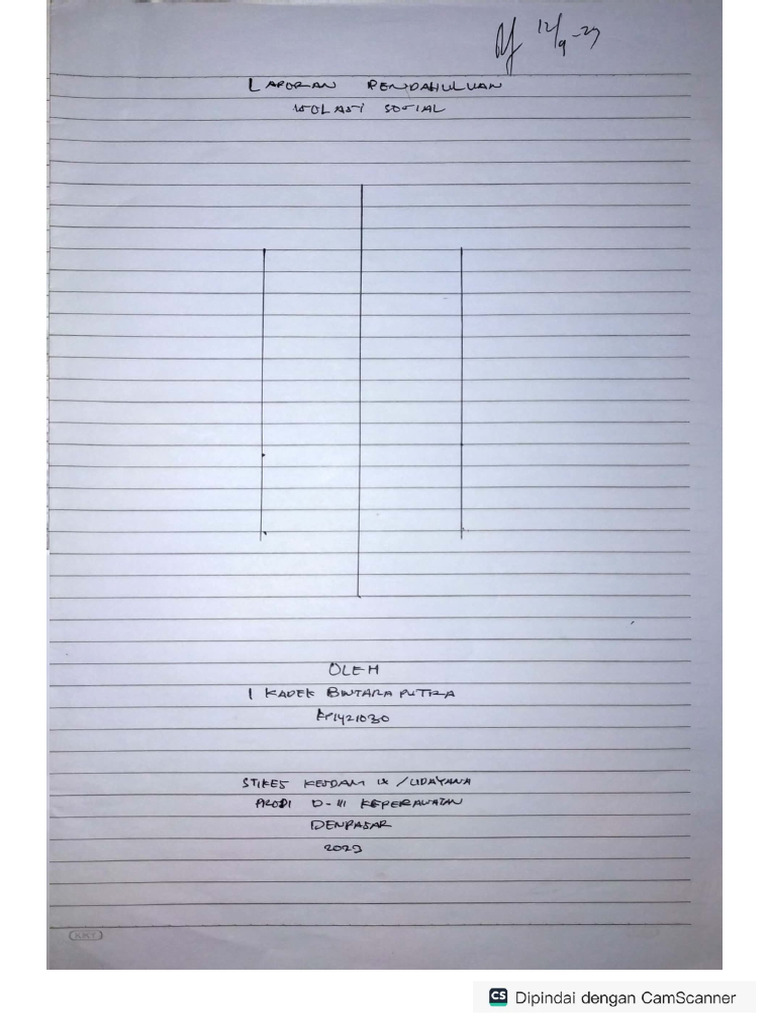 12/9-23
LAPORAN PENDAHULUAN
ISOLASI SOSIAL
OLEH
I KADEK BINTARA PUTRA
KP1421030
STIKES KESDAM IX /UDAYANA
PRODI D-III KEPERAWATAN
DENPASAR
2023
KKY
CS Dipindai dengan CamScanner